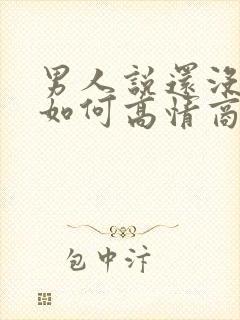 男人說還沒
如何高情商
包中汴